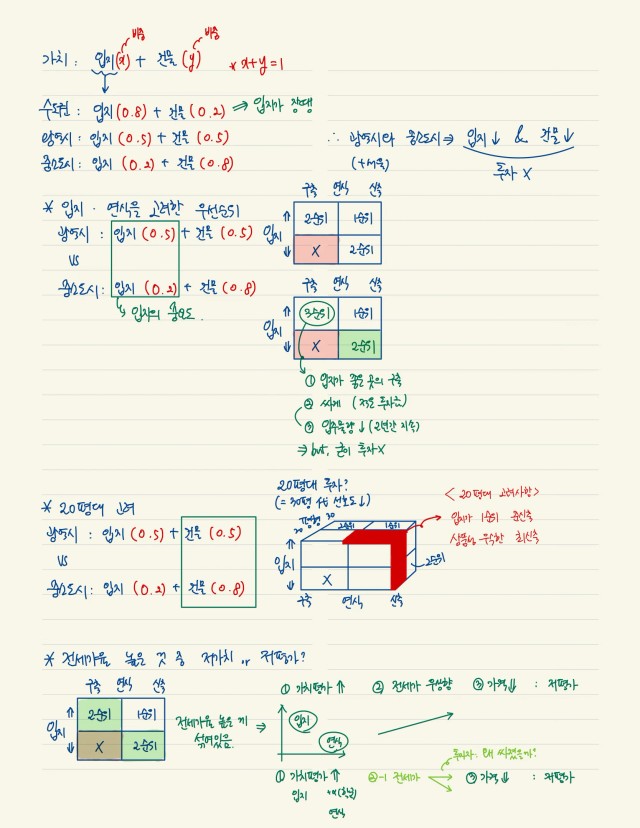 비중 비중
가치 : 입지(x) + 건물 (y) * x+y=1
수도권 : 입지 (0.8) + 건물 (0.2) ⇒ 입지가 장땡
광역시 : 입지 (0.5) + 건물 (0.5)
중소도시 : 입지 (0.2) + 건물 (0.8)
∴ 광역시와 중소도시 ⇒ 입지↓ & 건물↓
투자 X
* 입지 · 연식을 고려한 우선순위
광역시 : 입지 (0.5) + 건물 (0.5)
VS
중소도시 : 입지 (0.2) + 건물 (0.8)
↳ 입지의 중요도.
구축 연식 신축
입지 ↑ 2순위 1순위
↓ X 2순위
구축 연식 신축
입지 ↑ 3순위 1순위
↓ X 2순위
① 입지가 좋은 곳의 구축
② 싸게 (적은 투자금)
③ 입주물량↓ (2년간 지속)
⇒ but, 굳이 투자X
* 20평대 고려
광역시 : 입지 (0.5) + 건물 (0.5)
VS
중소도시 : 입지 (0.2) + 건물 (0.8)
20평대 투자?
(= 30평 수요 선호도↓)
평형 30
20
2순위 1순위
입지 ↑
↓ X
2순위
구축 연식 신축
< 20평대 고려사항 >
입지가 1순위 준신축
상품성 우수한 최신축
* 전세가율 높은 것 중 저가치 or 저평가?
구축 연식 신축
입지 ↑ 2순위 1순위
↓ X 2순위
전세가율 높은 게 ⇒
섞여있음.
① 가치평가 ⇑ ② 전세가 우상향 ③ 가격⇓ : 저평가
입지
연식
① 가치평가 ⇑
입지 +α (학군)
연식
②-1 전세가
투자자 : 왜 싸졌을까?
③ 가격⇓ : 저평가